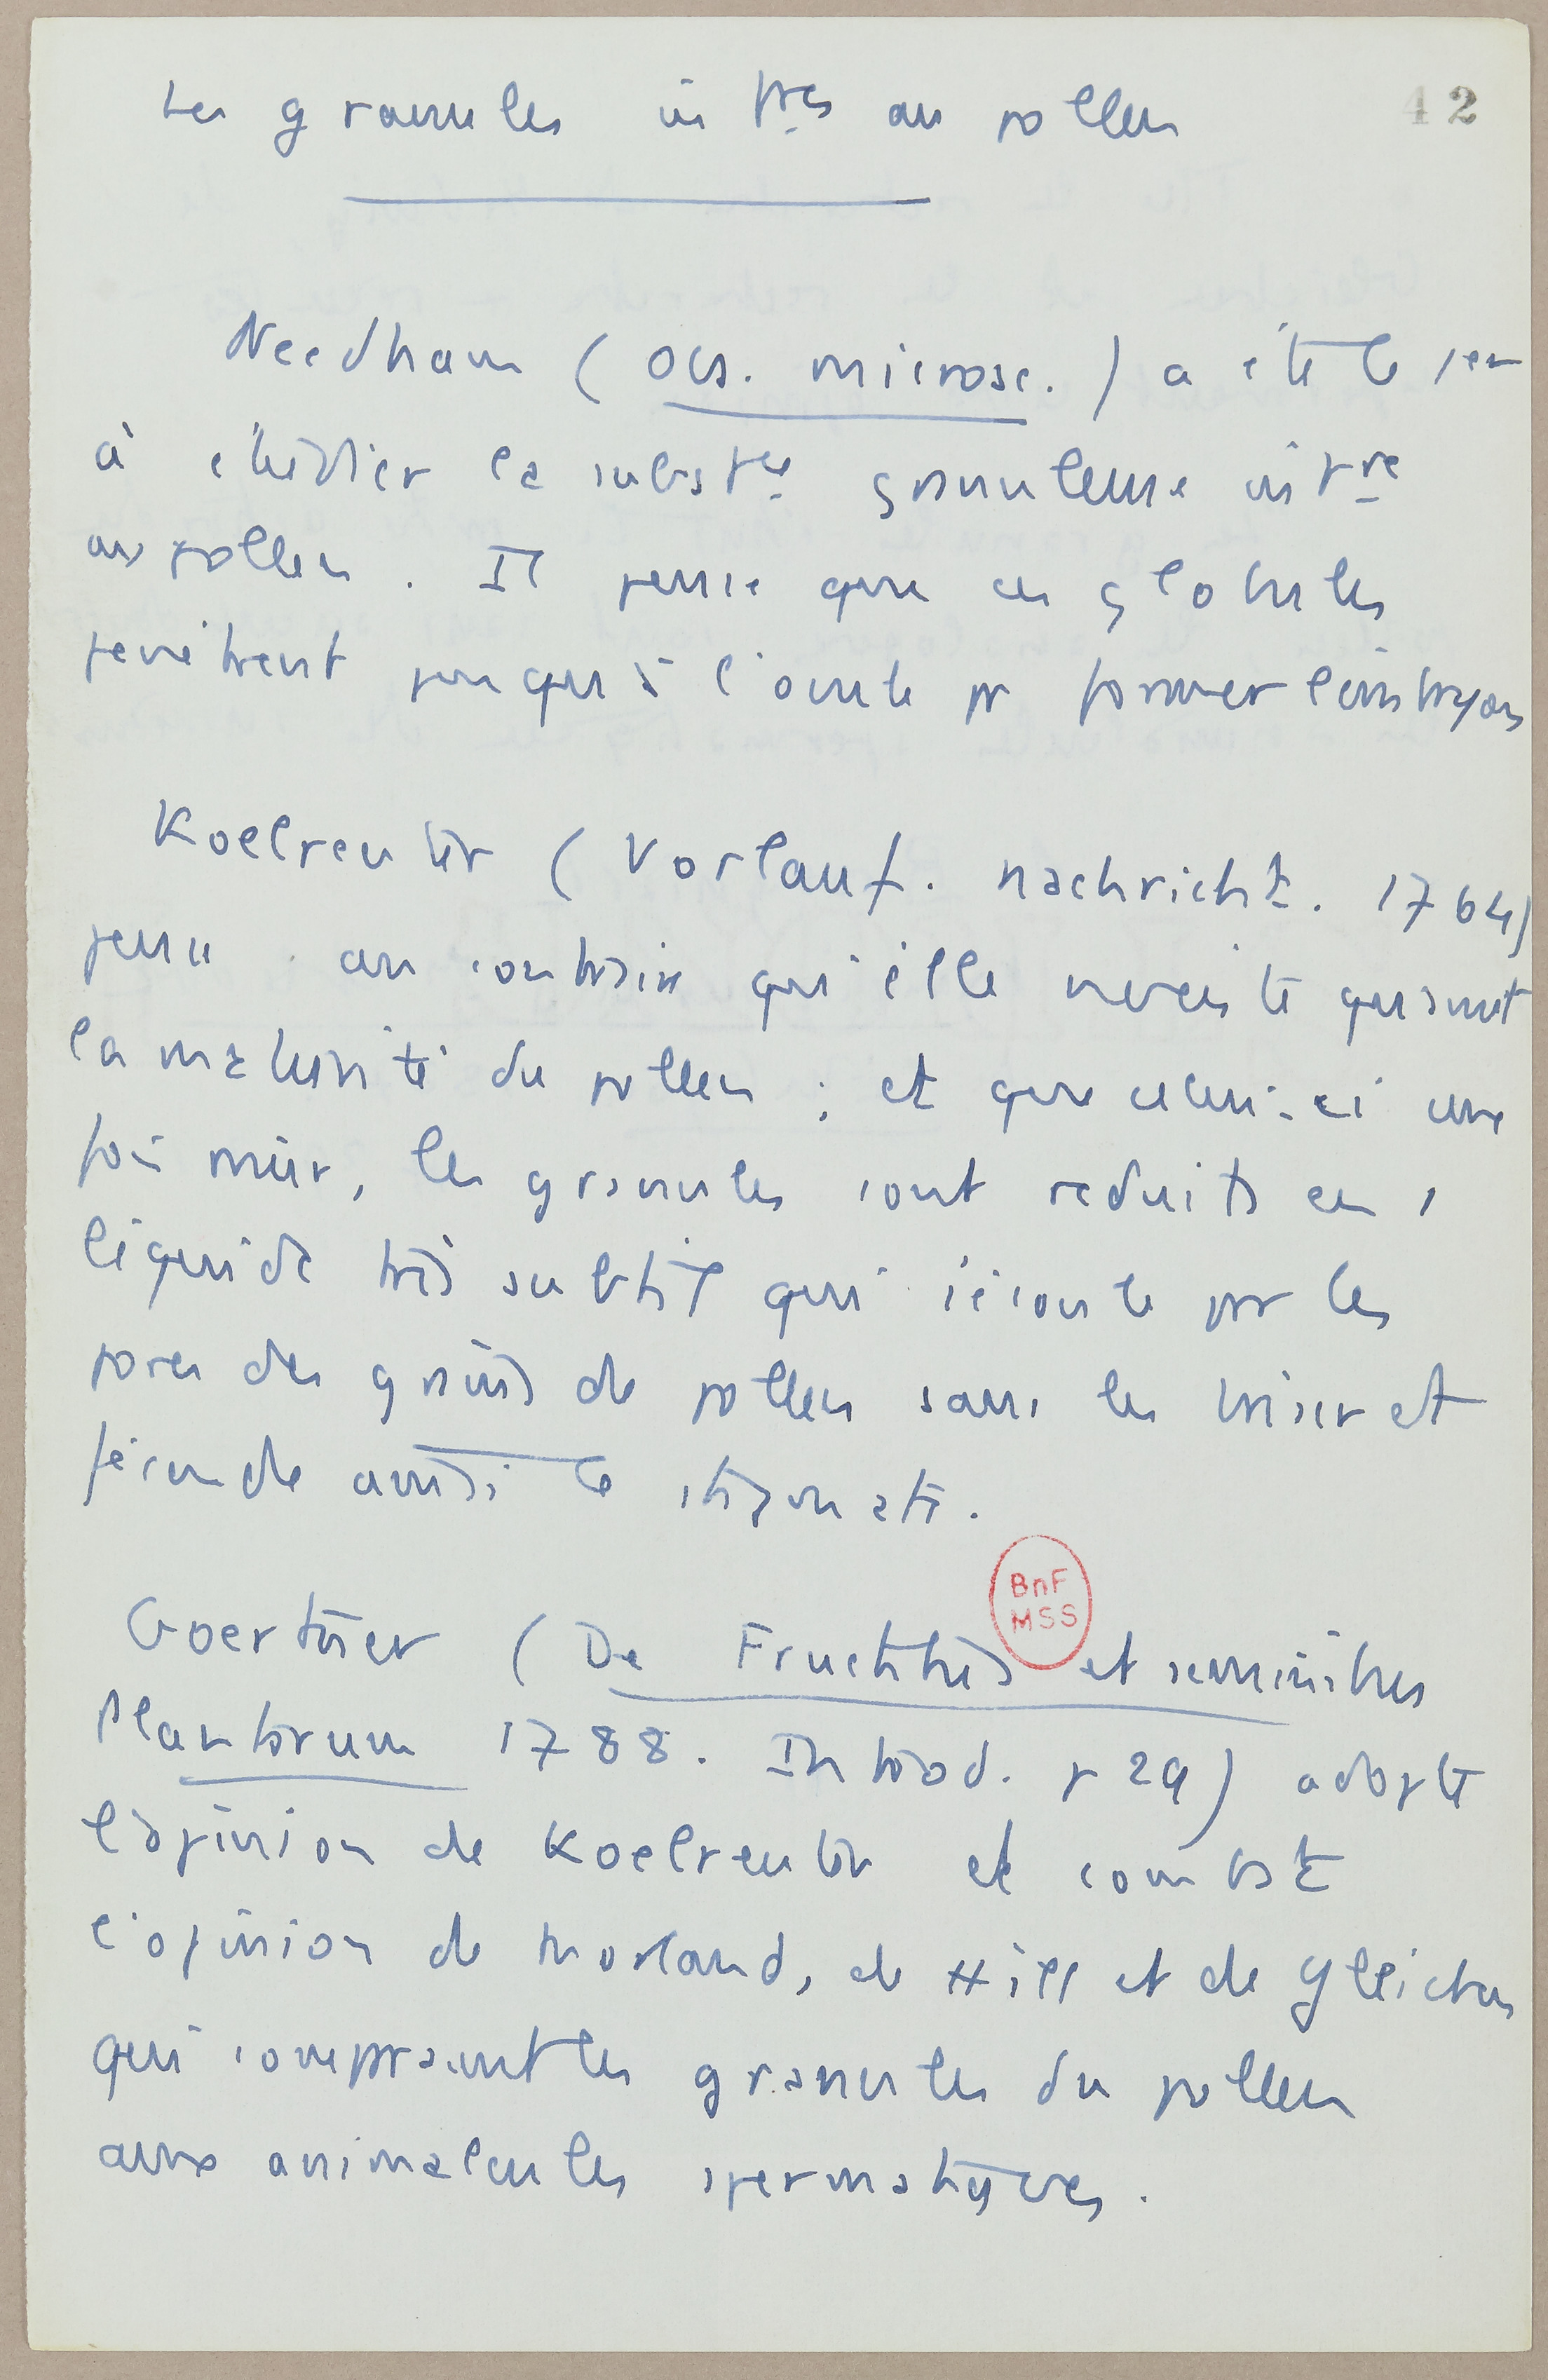 Les granules intres au pollen
42
Needham (Obs. microsc.) a été le 1er
à étudier la substce granuleuse intre
au pollen. Il pense que ces globules
penètrent jusqu'à l'ovule pr former l'embryon
Koelreuter (Vorlauf. Nachricht. 1764)
pense au contraire qu'elle n'existe qu'avant
la maturité du pollen ; et que celui-ci une
fois mûr, les granules sont reduits en 1
liquide très subtil qui s'écoule par les
pores des grains de pollen sans les briser et
féconde ainsi le stigmate.
BnF
MSS
Goertner (De Fructibus et seminibus
Plantarum 1788. Introd. p 29) adopte
l'opinion de Koelreuter et combat
l'opinion de Morland, de Hill et de Gleichen
qui comparaient les granules du pollen
aux animalcules spermatiques.